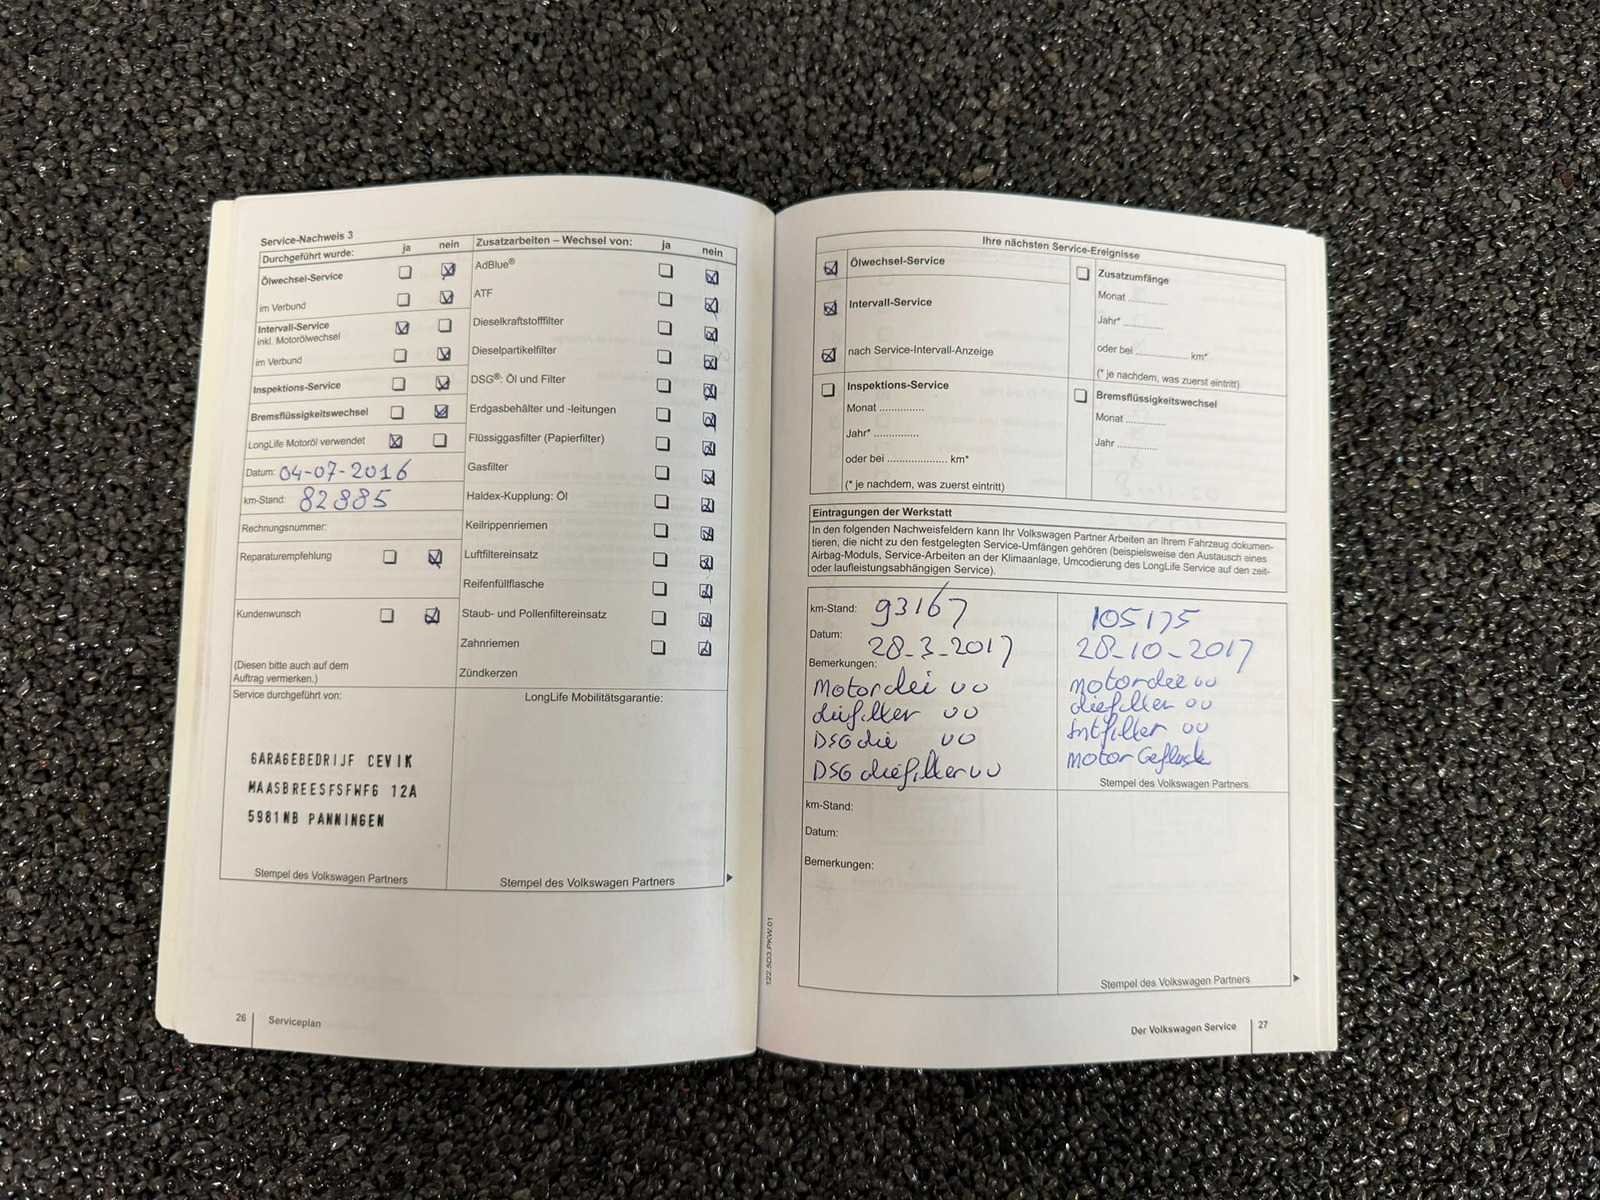 Service-Nachweis 3
Durchgeführt wurde: ja nein
Ölwechsel-Service
im Verbund
Intervall-Service
inkl. Motorölwechsel
im Verbund
Inspektions-Service
Bremsflüssigkeitswechsel
LongLife Motoröl verwendet
Datum: 04-07-2016
km-Stand: 82885
Rechnungsnummer:
Reparaturempfehlung
Kundenwunsch
(Diesen bitte auch auf dem
Auftrag vermerken.)
Zusatzarbeiten – Wechsel von: ja nein
AdBlue®
ATF
Dieselkraftstofffilter
Dieselpartikelfilter
DSG®: Öl und Filter
Erdgasbehälter und -leitungen
Flüssiggasfilter (Papierfilter)
Gasfilter
Haldex-Kupplung: Öl
Keilrippenriemen
Luftfiltereinsatz
Reifenfüllflasche
Staub- und Pollenfiltereinsatz
Zahnriemen
Zündkerzen
Service durchgeführt von:
GARAGEBEDRIJF CEVIK
MAASBREESFSFWFG 12A
5981NB PANNINGEN
Stempel des Volkswagen Partners
LongLife Mobilitätsgarantie:
Stempel des Volkswagen Partners
26 Serviceplan
122.5D3.PKW.01
Ihre nächsten Service-Ereignisse
Ölwechsel-Service
Intervall-Service
nach Service-Intervall-Anzeige
Inspektions-Service
Monat ...............
Jahr* ...............
oder bei .................... km*
(* je nachdem, was zuerst eintritt)
Zusatzumfänge
Monat .............
Jahr* .............
oder bei .................. km*
(* je nachdem, was zuerst eintritt)
Bremsflüssigkeitswechsel
Monat .............
Jahr .............
Eintragungen der Werkstatt
In den folgenden Nachweisfeldern kann Ihr Volkswagen Partner Arbeiten an Ihrem Fahrzeug dokumen-
tieren, die nicht zu den festgelegten Service-Umfängen gehören (beispielsweise den Austausch eines
Airbag-Moduls, Service-Arbeiten an der Klimaanlage, Umcodierung des LongLife Service auf den zeit-
oder laufleistungsabhängigen Service).
km-Stand: 93167
Datum: 28-3-2017
Bemerkungen:
Motor
DSG
DSG
105175
28-10-2017
motor
motor
Stempel des Volkswagen Partners
km-Stand:
Datum:
Bemerkungen:
Stempel des Volkswagen Partners
Der Volkswagen Service 27